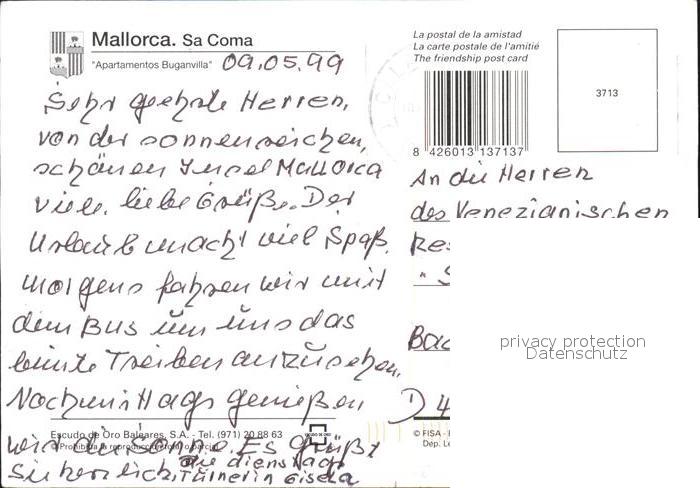 Mallorca. Sa Coma
"Apartamentos Buganvilla" 09.05.99
Sehr geehrte Herren,
von der sonnenreichen,
schönen Insel Mallorca
viele liebe Grüße. Der
Urlaub macht viel Spaß.
Morgens fahren wir mit
dem Bus um uns das
bunte Treiben anzusehen,
Nachmittags genießen
wir die Sonne. Es grüßt
Sie herzlich die Dienstags
Turnerin Gisela
Escudo de Oro Baleares, S.A. - Tel. (971) 20 88 63
© Prohibida la reproducción total o parcial
La postal de la amistad
La carte postale de l'amitié
The friendship post card
3713
8 426013 137137
An die Herren
des Venezianischen
Res
"S
Bad
D 4
© FISA - 
Dep. Le
privacy protection
Datenschutz